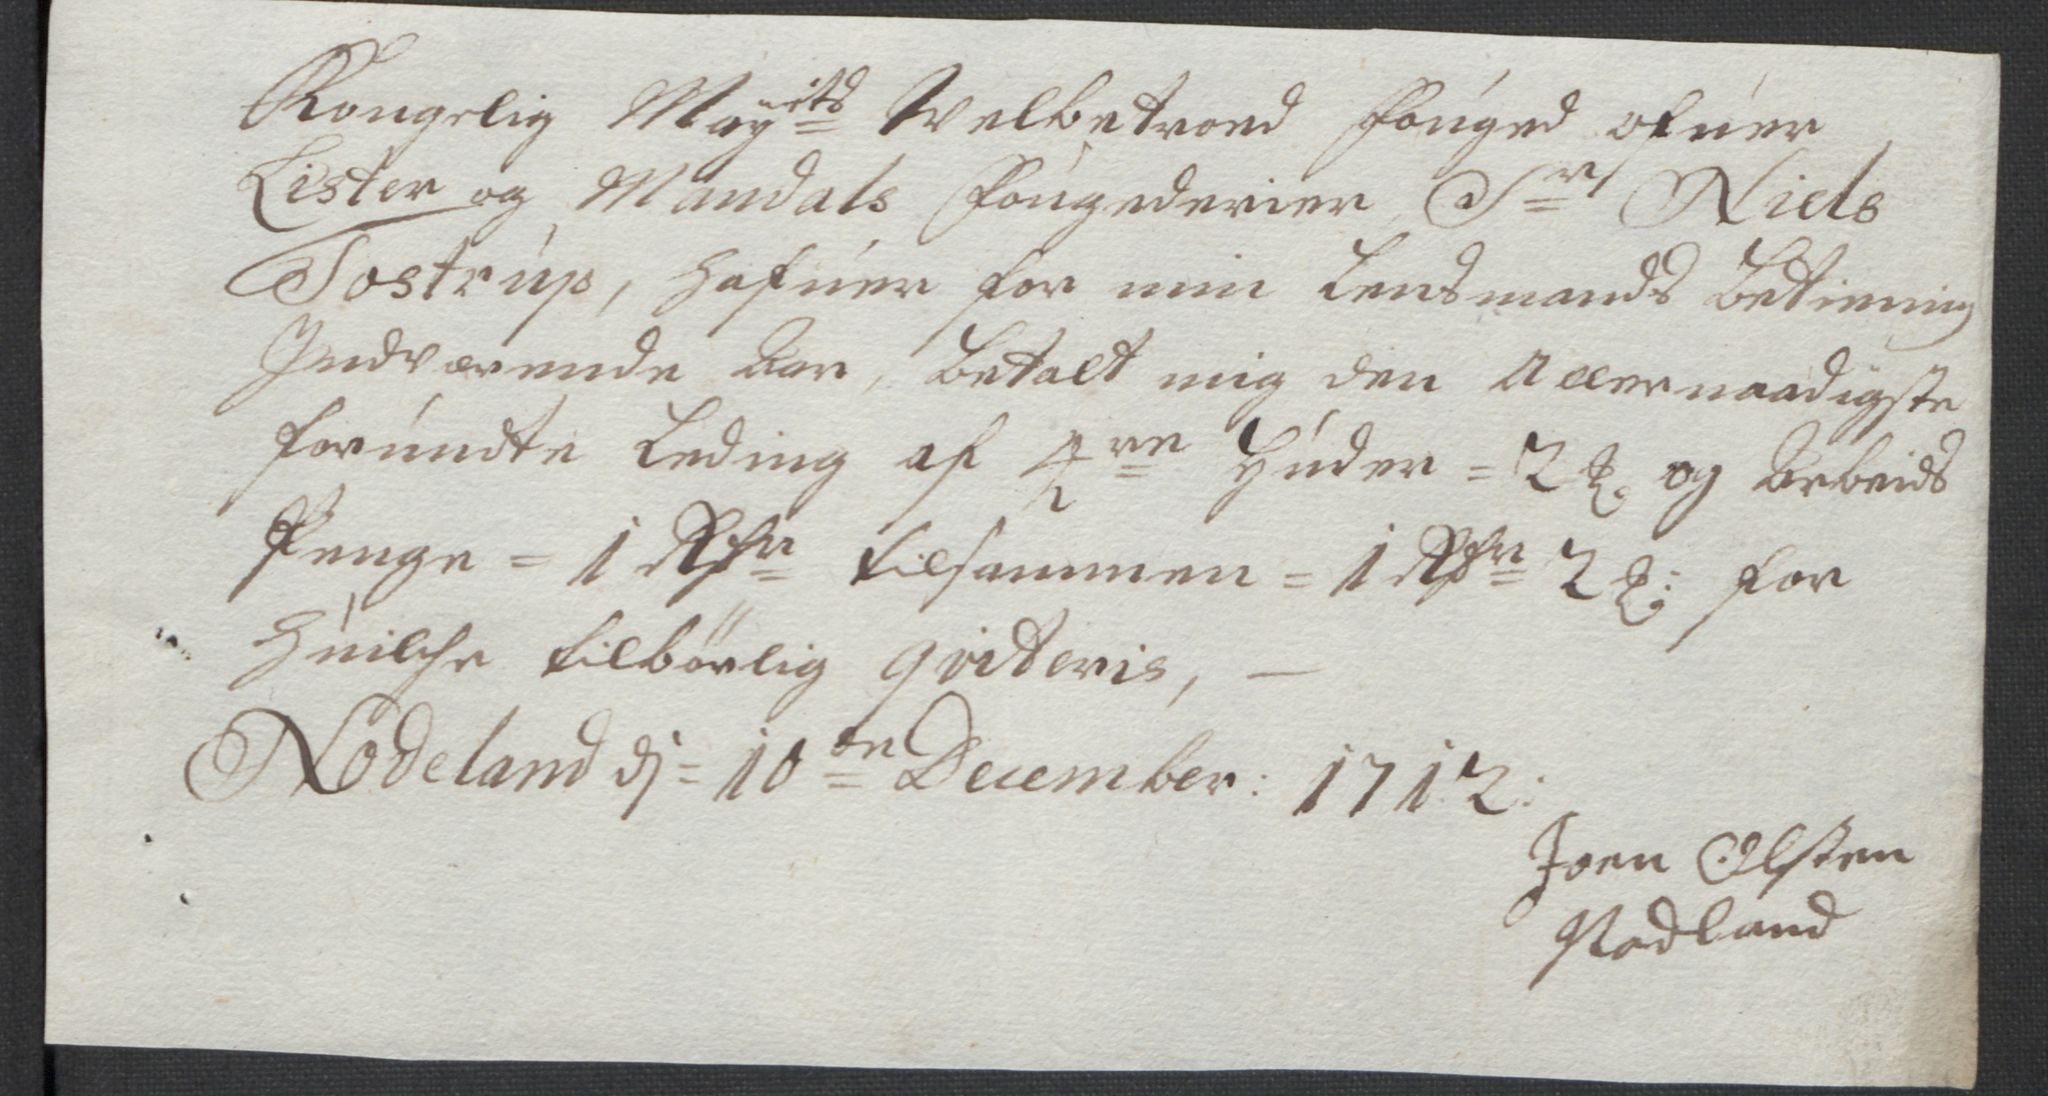 Kongelig Mayᵗᵉᵗˢ Welbetroed Fouged ofuer
Lister og Mandals Fougederier Sʳ Niels
Tostrup, hafuer for min Lensmands Betiening
Indværende Aar, betalt mig den Allernaadigste
forundte Leding af 4ʳᵉ Huder = 2 og Arbeids
Penge = 1 tilsammen = 1 2 for
huilche tilbørlig qviteris, —
Nodeland dj = 10ᵈᵉ December: 1712:
Joen Olsen
Nodland